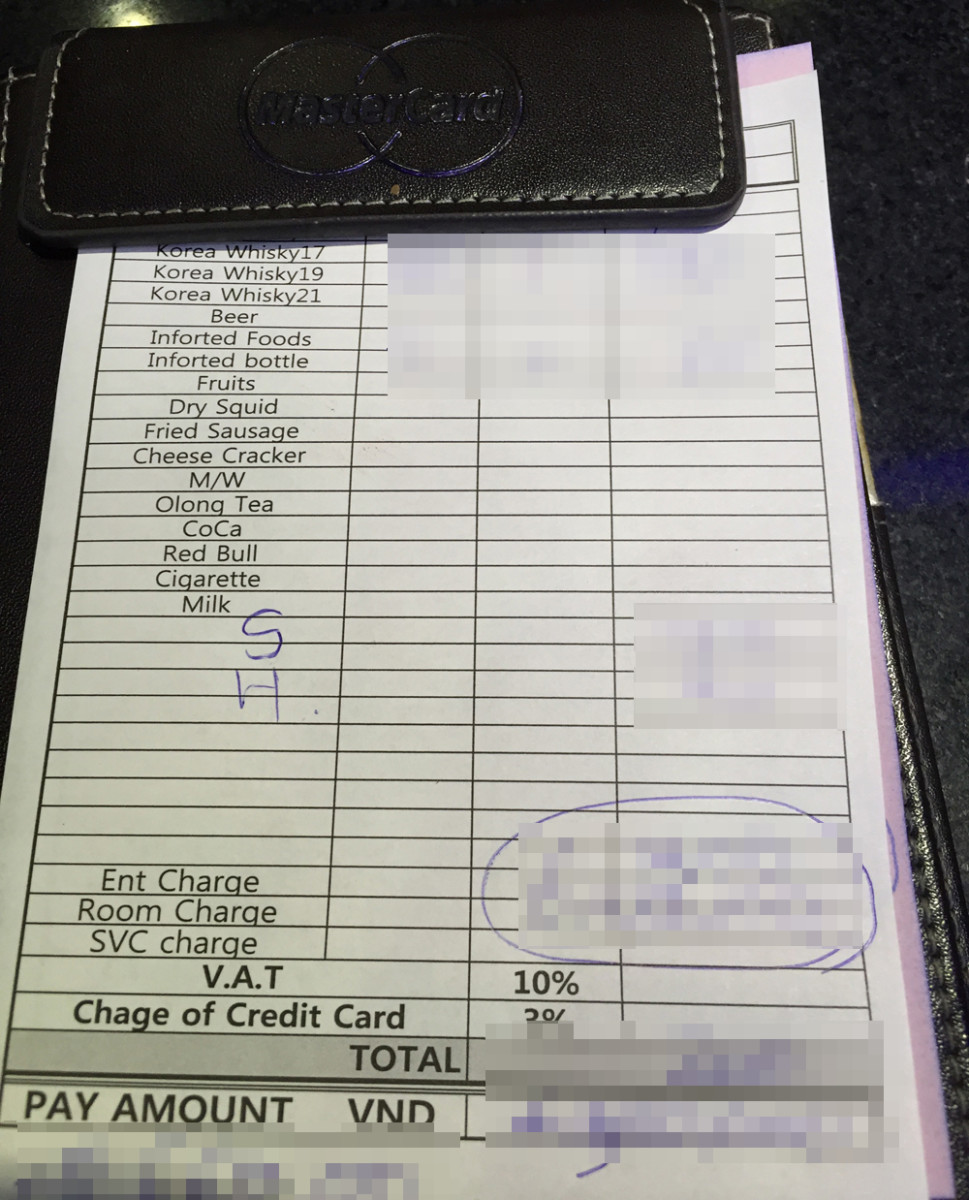 MasterCard
Korea Whisky17
Korea Whisky19
Korea Whisky21
Beer
Inforted Foods
Inforted bottle
Fruits
Dry Squid
Fried Sausage
Cheese Cracker
M/W
Olong Tea
CoCa
Red Bull
Cigarette
Milk
S
H.
Ent Charge
Room Charge
SVC charge
V.A.T 10%
Chage of Credit Card 3%
TOTAL
PAY AMOUNT VND